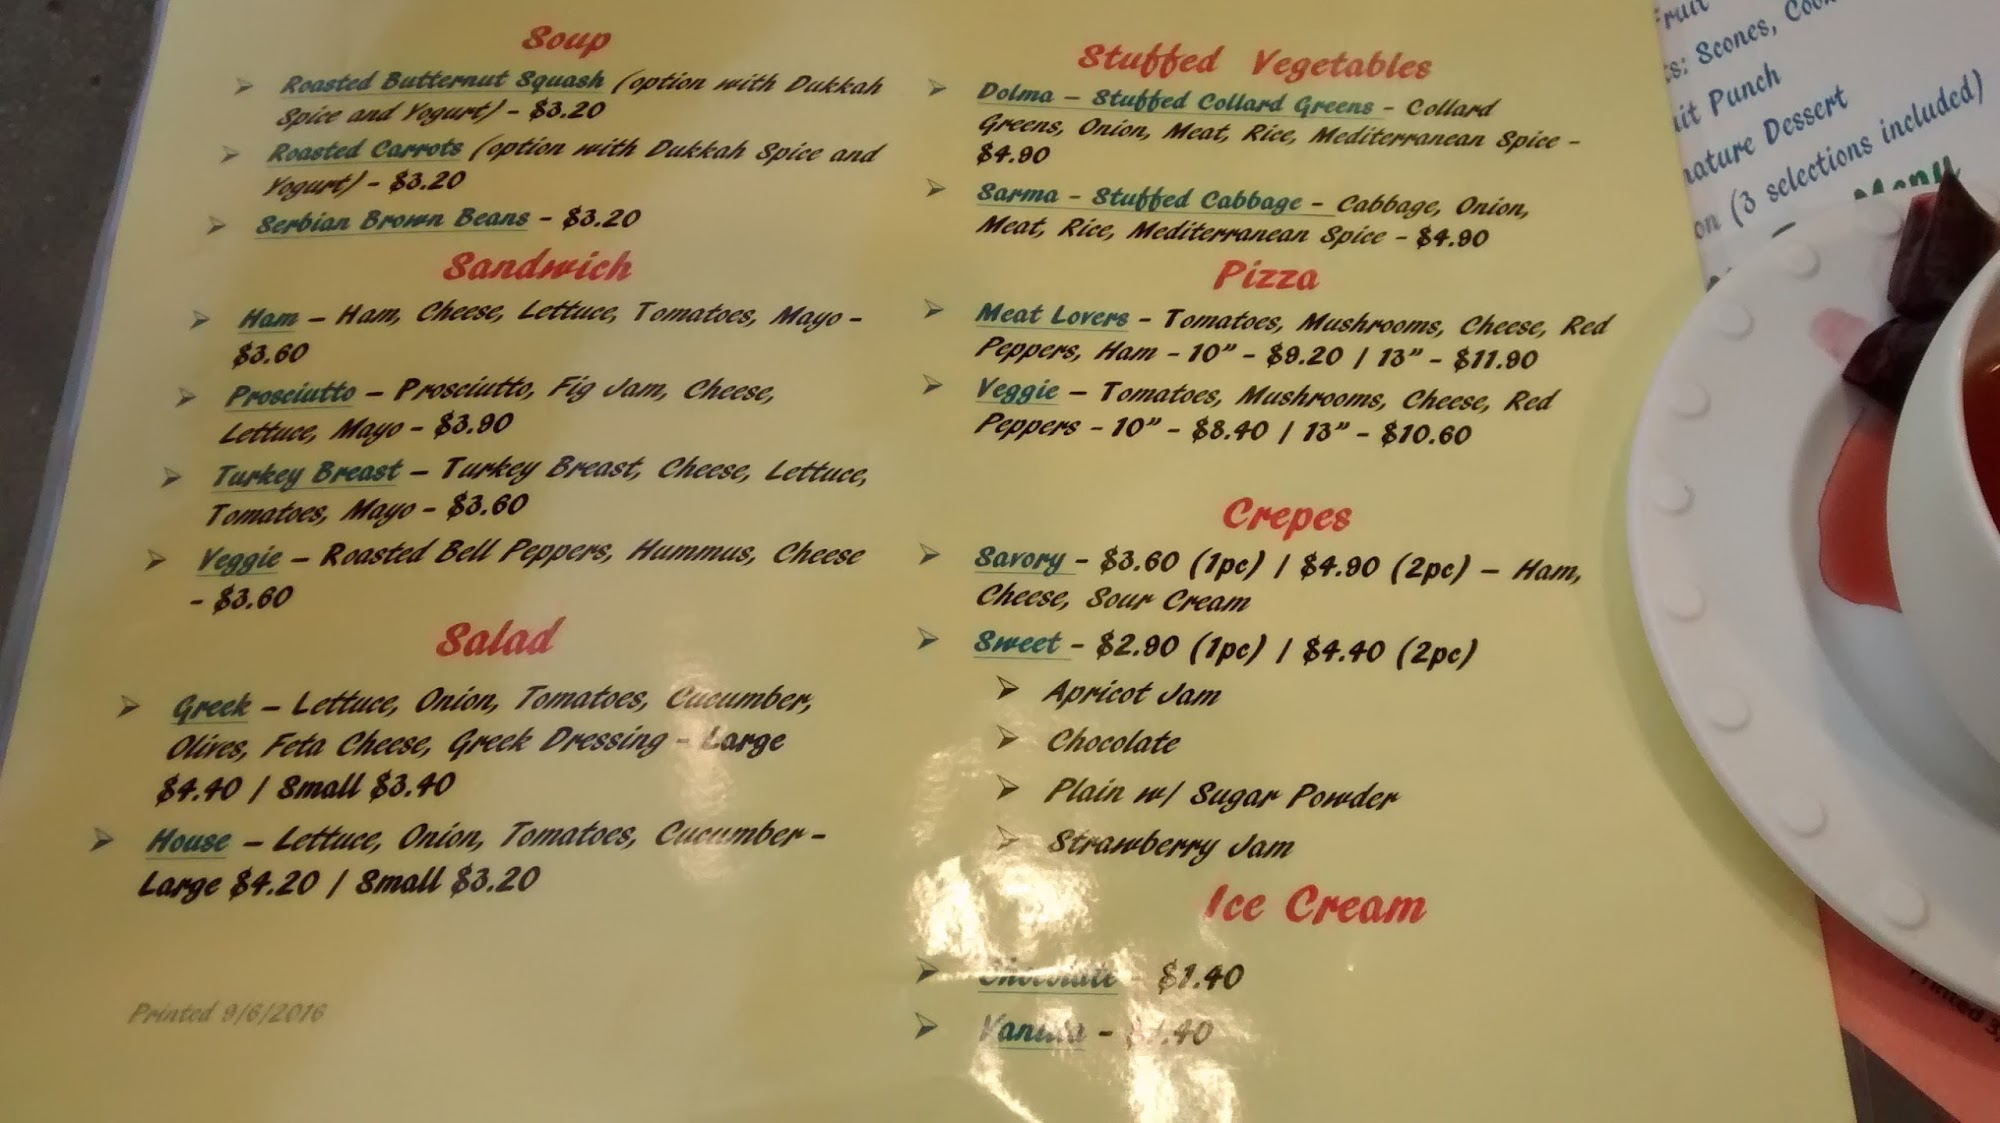 Soup
Roasted Butternut Squash (option with Dukkah
Spice and Yogurt) - $3.20
Roasted Carrots (option with Dukkah Spice and
Yogurt) - $3.20
Serbian Brown Beans - $3.20
Sandwich
Ham – Ham, Cheese, Lettuce, Tomatoes, Mayo -
$3.60
Prosciutto – Prosciutto, Fig Jam, Cheese,
Lettuce, Mayo - $3.90
Turkey Breast – Turkey Breast, Cheese, Lettuce,
Tomatoes, Mayo - $3.60
Veggie – Roasted Bell Peppers, Hummus, Cheese
- $3.60
Salad
Greek – Lettuce, Onion, Tomatoes, Cucumber,
Olives, Feta Cheese, Greek Dressing - Large
$4.40 / Small $3.40
House – Lettuce, Onion, Tomatoes, Cucumber -
Large $4.20 / Small $3.20
Printed 9/6/2016
Stuffed Vegetables
Dolma – Stuffed Collard Greens - Collard
Greens, Onion, Meat, Rice, Mediterranean Spice -
$4.90
Sarma - Stuffed Cabbage - Cabbage, Onion,
Meat, Rice, Mediterranean Spice - $4.90
Pizza
Meat Lovers - Tomatoes, Mushrooms, Cheese, Red
Peppers, Ham - 10" - $9.20 / 13" - $11.90
Veggie – Tomatoes, Mushrooms, Cheese, Red
Peppers - 10" - $8.40 / 13" - $10.60
Crepes
Savory - $3.60 (1pc) / $4.90 (2pc) – Ham,
Cheese, Sour Cream
Sweet - $2.90 (1pc) / $4.40 (2pc)
Apricot Jam
Chocolate
Plain w/ Sugar Powder
Strawberry Jam
Ice Cream
Chocolate - $1.40
Vanilla - $1.40
Fruit
: Scones,
Punch
Dessert
(3 selections included)
Menu